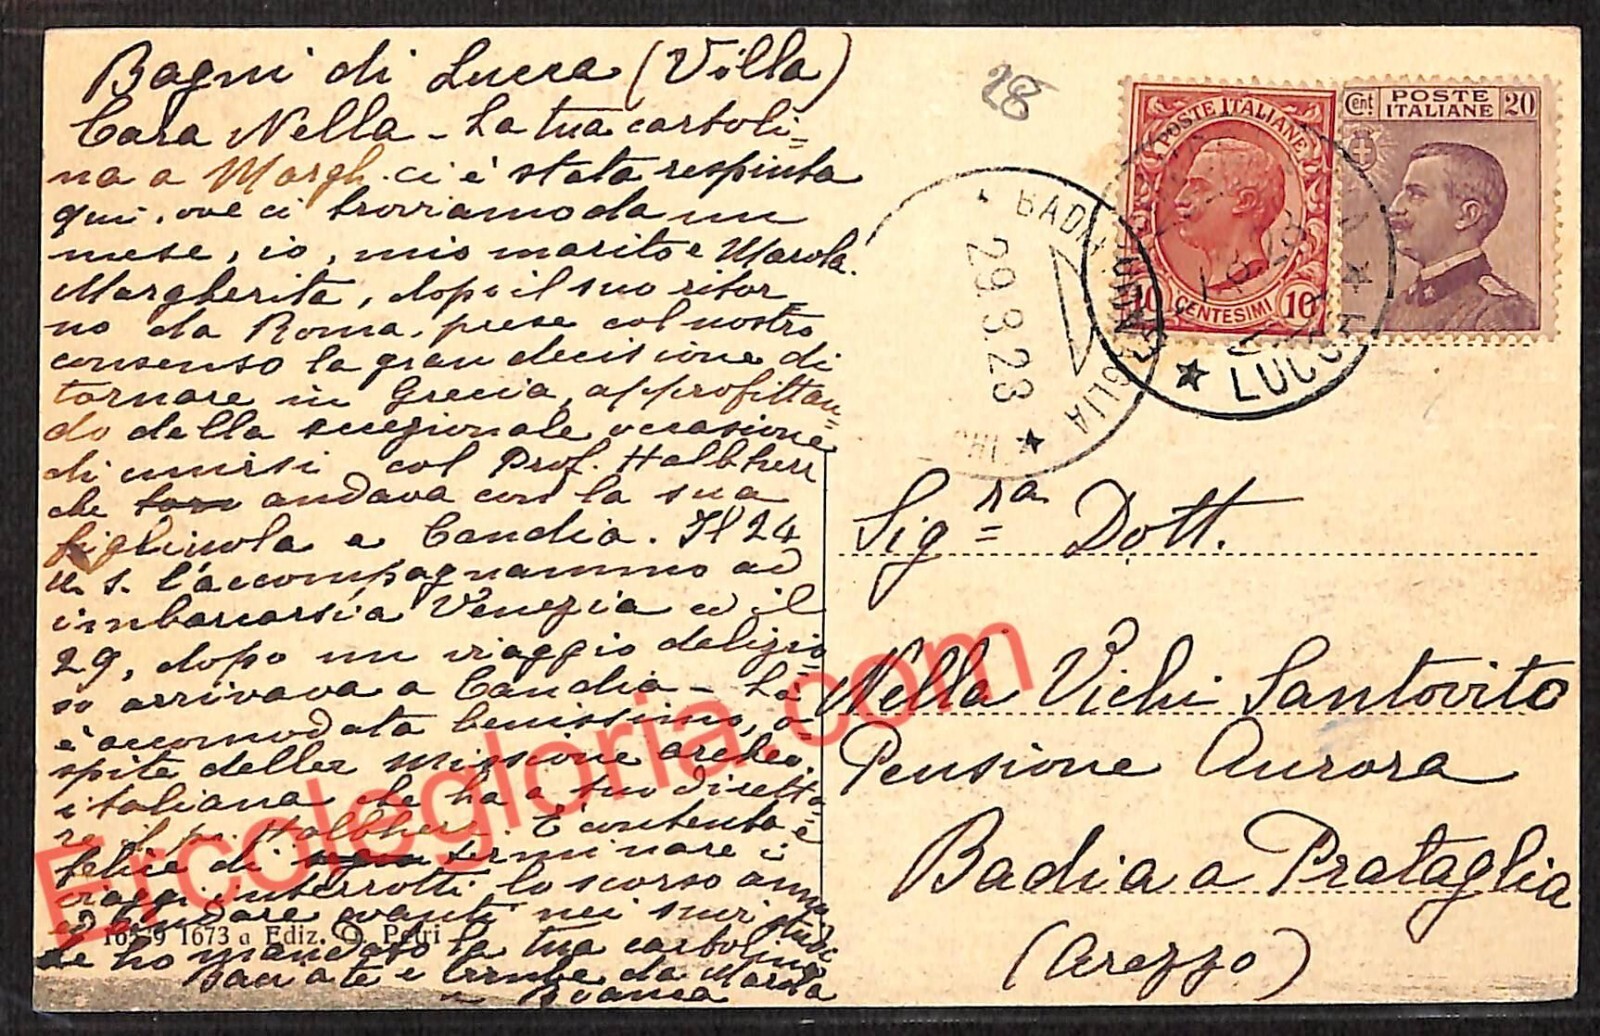 Bagni di Lucca (Villa)
Cara Nella - La tua cartoli=
na a Margh. ci è stata respinta
qui, ove ci troviamo da un
mese, io, mio marito e Marola.
Margherita, dopo il suo ritor_
no da Roma, prese col nostro
consenso la gran decisione di
tornare in Grecia, approfittan=
do della occasione
di unirsi col Prof. Halbherr
che andava con la sua
figliuola a Candia. Il 24
u. s. l'accompagnammo ad
imbarcarsi a Venezia ed il
29, dopo un viaggio delizio
so arrivava a Candia - Là
è accomodata benissimo, o-
spite della missione archeo.
italiana che ha a suo diretto
re il pr. Halbherr. È contenta e
felice di terminare i
viaggi interrotti lo scorso anno
ed andare avanti nei suoi studi
Le ho mandato la tua cartolina
Baciate e da Marola
Bianca
1673 a Ediz. G. Petri
28
POSTE ITALIANE
10 CENTESIMI 10
Cent POSTE ITALIANE 20
BADIA PRATAGLIA
29.8.28
LUCCA
Sig.ra Dott.
Nella Vichi Santovito
Pensione Aurora
Badia a Prataglia
(Arezzo)
Ercolegloria.com